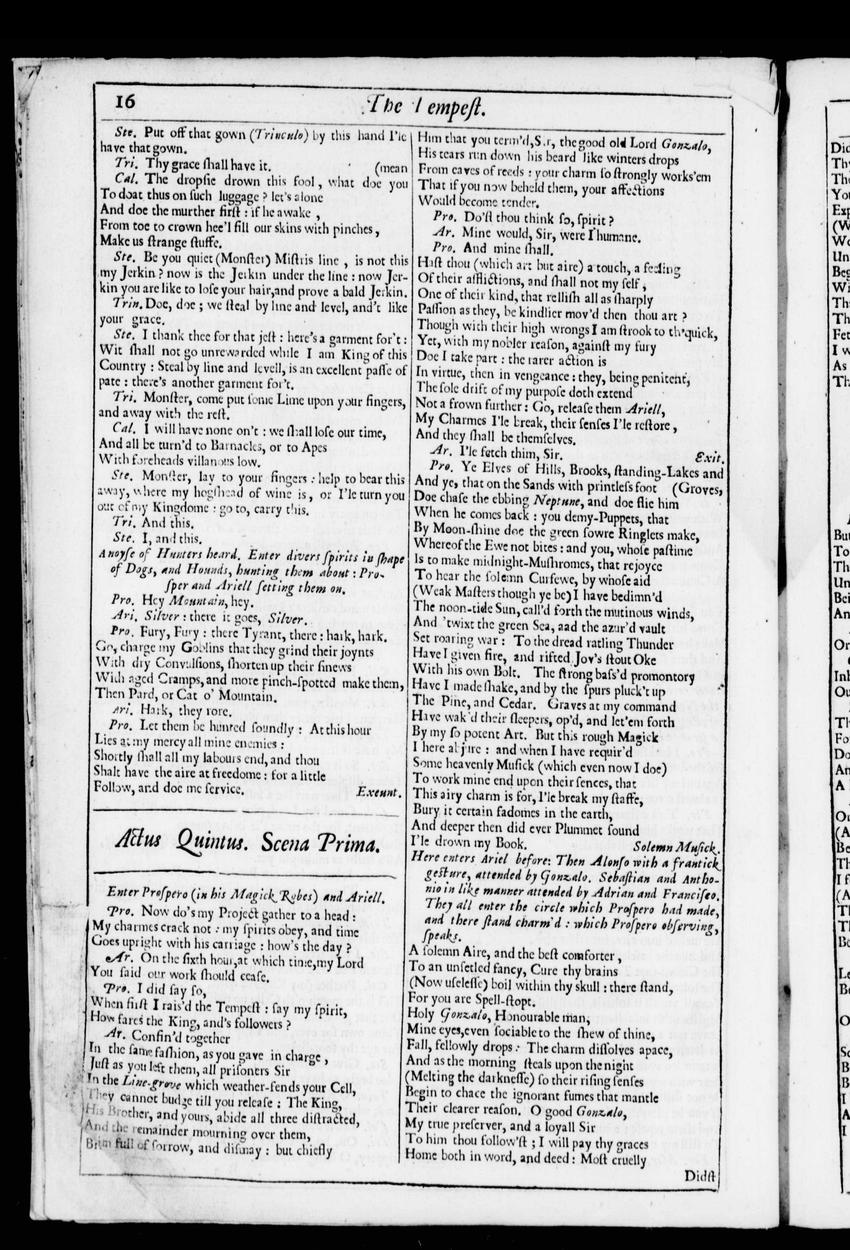 16
The Tempeſt.
Ste. Put off that gown (Trinculo) by this hand I'le
have that gown.
Tri. Thy grace ſhall have it. (mean
Cal. The dropſie drown this fool, what doe you
To doat thus on ſuch luggage? let's alone
And doe the murther firſt: if he awake,
From toe to crown hee'l fill our skins with pinches,
Make us ſtrange ſtuffe.
Ste. Be you quiet (Monſter) Miſtris line, is not this
my Jerkin? now is the Jerkin under the line: now Jer-
kin you are like to loſe your hair, and prove a bald Jerkin.
Trin. Doe, doe; we ſteal by line and level, and't like
your grace.
Ste. I thank thee for that jeſt: here's a garment for't:
Wit ſhall not go unrewarded while I am King of this
Country: Steal by line and levell, is an excellent paſſe of
pate: there's another garment for't.
Tri. Monſter, come put ſome Lime upon your fingers,
and away with the reſt.
Cal. I will have none on't: we ſhall loſe our time,
And all be turn'd to Barnacles, or to Apes
With foreheads villanous low.
Ste. Monſter, lay to your fingers: help to bear this
away, where my hogſhead of wine is, or I'le turn you
out of my Kingdome: go to, carry this.
Tri. And this.
Ste. I, and this.
A noyſe of Hunters heard. Enter divers ſpirits in ſhape
of Dogs, and Hounds, hunting them about: Pro-
ſper and Ariell ſetting them on.
Pro. Hey Mountain, hey.
Ari. Silver: there it goes, Silver.
Pro. Fury, Fury: there Tyrant, there: hark, hark.
Go, charge my Goblins that they grind their joynts
With dry Convulſions, ſhorten up their ſinews
With aged Cramps, and more pinch-ſpotted make them,
Then Pard, or Cat o' Mountain.
Ari. Hark, they rore.
Pro. Let them be hunted ſoundly: At this hour
Lies at my mercy all mine enemies:
Shortly ſhall all my labours end, and thou
Shalt have the aire at freedome: for a little
Follow, and doe me ſervice. Exeunt.
Actus Quintus. Scena Prima.
Enter Proſpero (in his Magick Robes) and Ariell.
Pro. Now do's my Project gather to a head:
My charmes crack not: my ſpirits obey, and time
Goes upright with his carriage: how's the day?
Ar. On the ſixth hour, at which time, my Lord
You ſaid our work ſhould ceaſe.
Pro. I did ſay ſo,
When firſt I rais'd the Tempeſt: ſay my ſpirit,
How fares the King, and's followers?
Ar. Confin'd together
In the ſame faſhion, as you gave in charge,
Juſt as you left them, all priſoners Sir
In the Line-grove which weather-fends your Cell,
They cannot budge till you releaſe: The King,
His Brother, and yours, abide all three diſtracted,
And the remainder mourning over them,
Brim full of ſorrow, and diſmay: but chiefly
Him that you term'd, Sir, the good old Lord Gonzalo,
His tears run down his beard like winters drops
From eaves of reeds: your charm ſo ſtrongly works'em
That if you now beheld them, your affections
Would become tender.
Pro. Do'ſt thou think ſo, ſpirit?
Ar. Mine would, Sir, were I humane.
Pro. And mine ſhall.
Haſt thou (which art but aire) a touch, a feeling
Of their afflictions, and ſhall not my ſelf,
One of their kind, that relliſh all as ſharply
Paſſion as they, be kindlier mov'd then thou art?
Though with their high wrongs I am ſtrook to th'quick,
Yet, with my nobler reaſon, againſt my fury
Doe I take part: the rarer action is
In virtue, then in vengeance: they, being penitent,
The ſole drift of my purpoſe doth extend
Not a frown further: Go, releaſe them Ariell,
My Charmes I'le break, their ſenſes I'le reſtore,
And they ſhall be themſelves.
Ar. I'le fetch thim, Sir. Exit.
Pro. Ye Elves of Hills, Brooks, ſtanding-Lakes and
And ye, that on the Sands with printleſs foot (Groves,
Doe chaſe the ebbing Neptune, and doe flie him
When he comes back: you demy-Puppets, that
By Moon-ſhine doe the green ſowre Ringlets make,
Whereof the Ewe not bites: and you, whoſe paſtime
Is to make midnight-Muſhromes, that rejoyce
To hear the ſolemn Curfewe, by whoſe aid
(Weak Maſters though ye be) I have bedimn'd
The noon-tide Sun, call'd forth the mutinous winds,
And 'twixt the green Sea, aad the azur'd vault
Set roaring war: To the dread ratling Thunder
Have I given fire, and rifted Jov's ſtout Oke
With his own Bolt. The ſtrong baſs'd promontory
Have I made ſhake, and by the ſpurs pluck't up
The Pine, and Cedar. Graves at my command
Have wak'd their ſleepers, op'd, and let'em forth
By my ſo potent Art. But this rough Magick
I here abjure: and when I have requir'd
Some heavenly Muſick (which even now I doe)
To work mine end upon their ſences, that
This airy charm is for, I'le break my ſtaffe,
Bury it certain fadomes in the earth,
And deeper then did ever Plummet ſound
I'le drown my Book. Solemn Muſick.
Here enters Ariel before: Then Alonſo with a frantick
geſture, attended by Gonzalo. Sebaſtian and Antho-
nio in like manner attended by Adrian and Franciſco.
They all enter the circle which Proſpero had made,
and there ſtand charm'd: which Proſpero obſerving,
ſpeaks.
A ſolemn Aire, and the beſt comforter,
To an unſetled fancy, Cure thy brains
(Now uſeleſſe) boil within thy skull: there ſtand,
For you are Spell-ſtopt.
Holy Gonzalo, Honourable man,
Mine eyes, even ſociable to the ſhew of thine,
Fall, fellowly drops: The charm diſſolves apace,
And as the morning ſteals upon the night
(Melting the darkneſſe) ſo their riſing ſenſes
Begin to chace the ignorant fumes that mantle
Their clearer reaſon. O good Gonzalo,
My true preſerver, and a loyall Sir
To him thou follow'ſt; I will pay thy graces
Home both in word, and deed: Moſt cruelly
Didſt